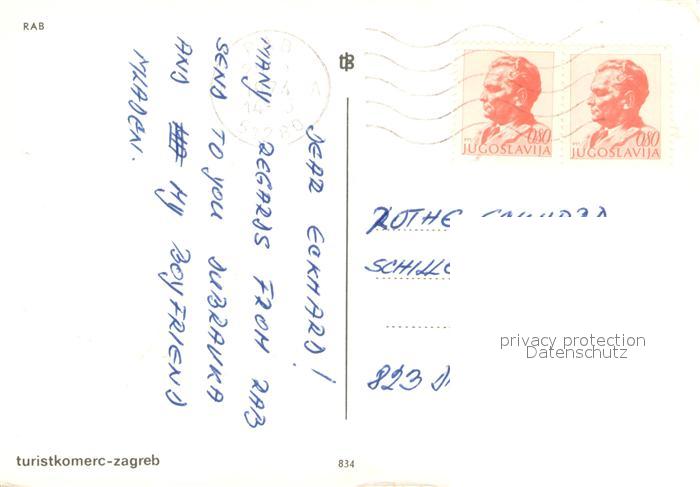 RAB
DEAR ECKHARD!
MANY REGARDS FROM RAB
SEND TO YOU DUBRAVKA
AND MY BOYFRIEND
MLADEN.
0.80
JUGOSLAVIJA
0.80
JUGOSLAVIJA
ROTHE
SCHILLE
823
privacy protection
Datenschutz
turistkomerc-zagreb
834